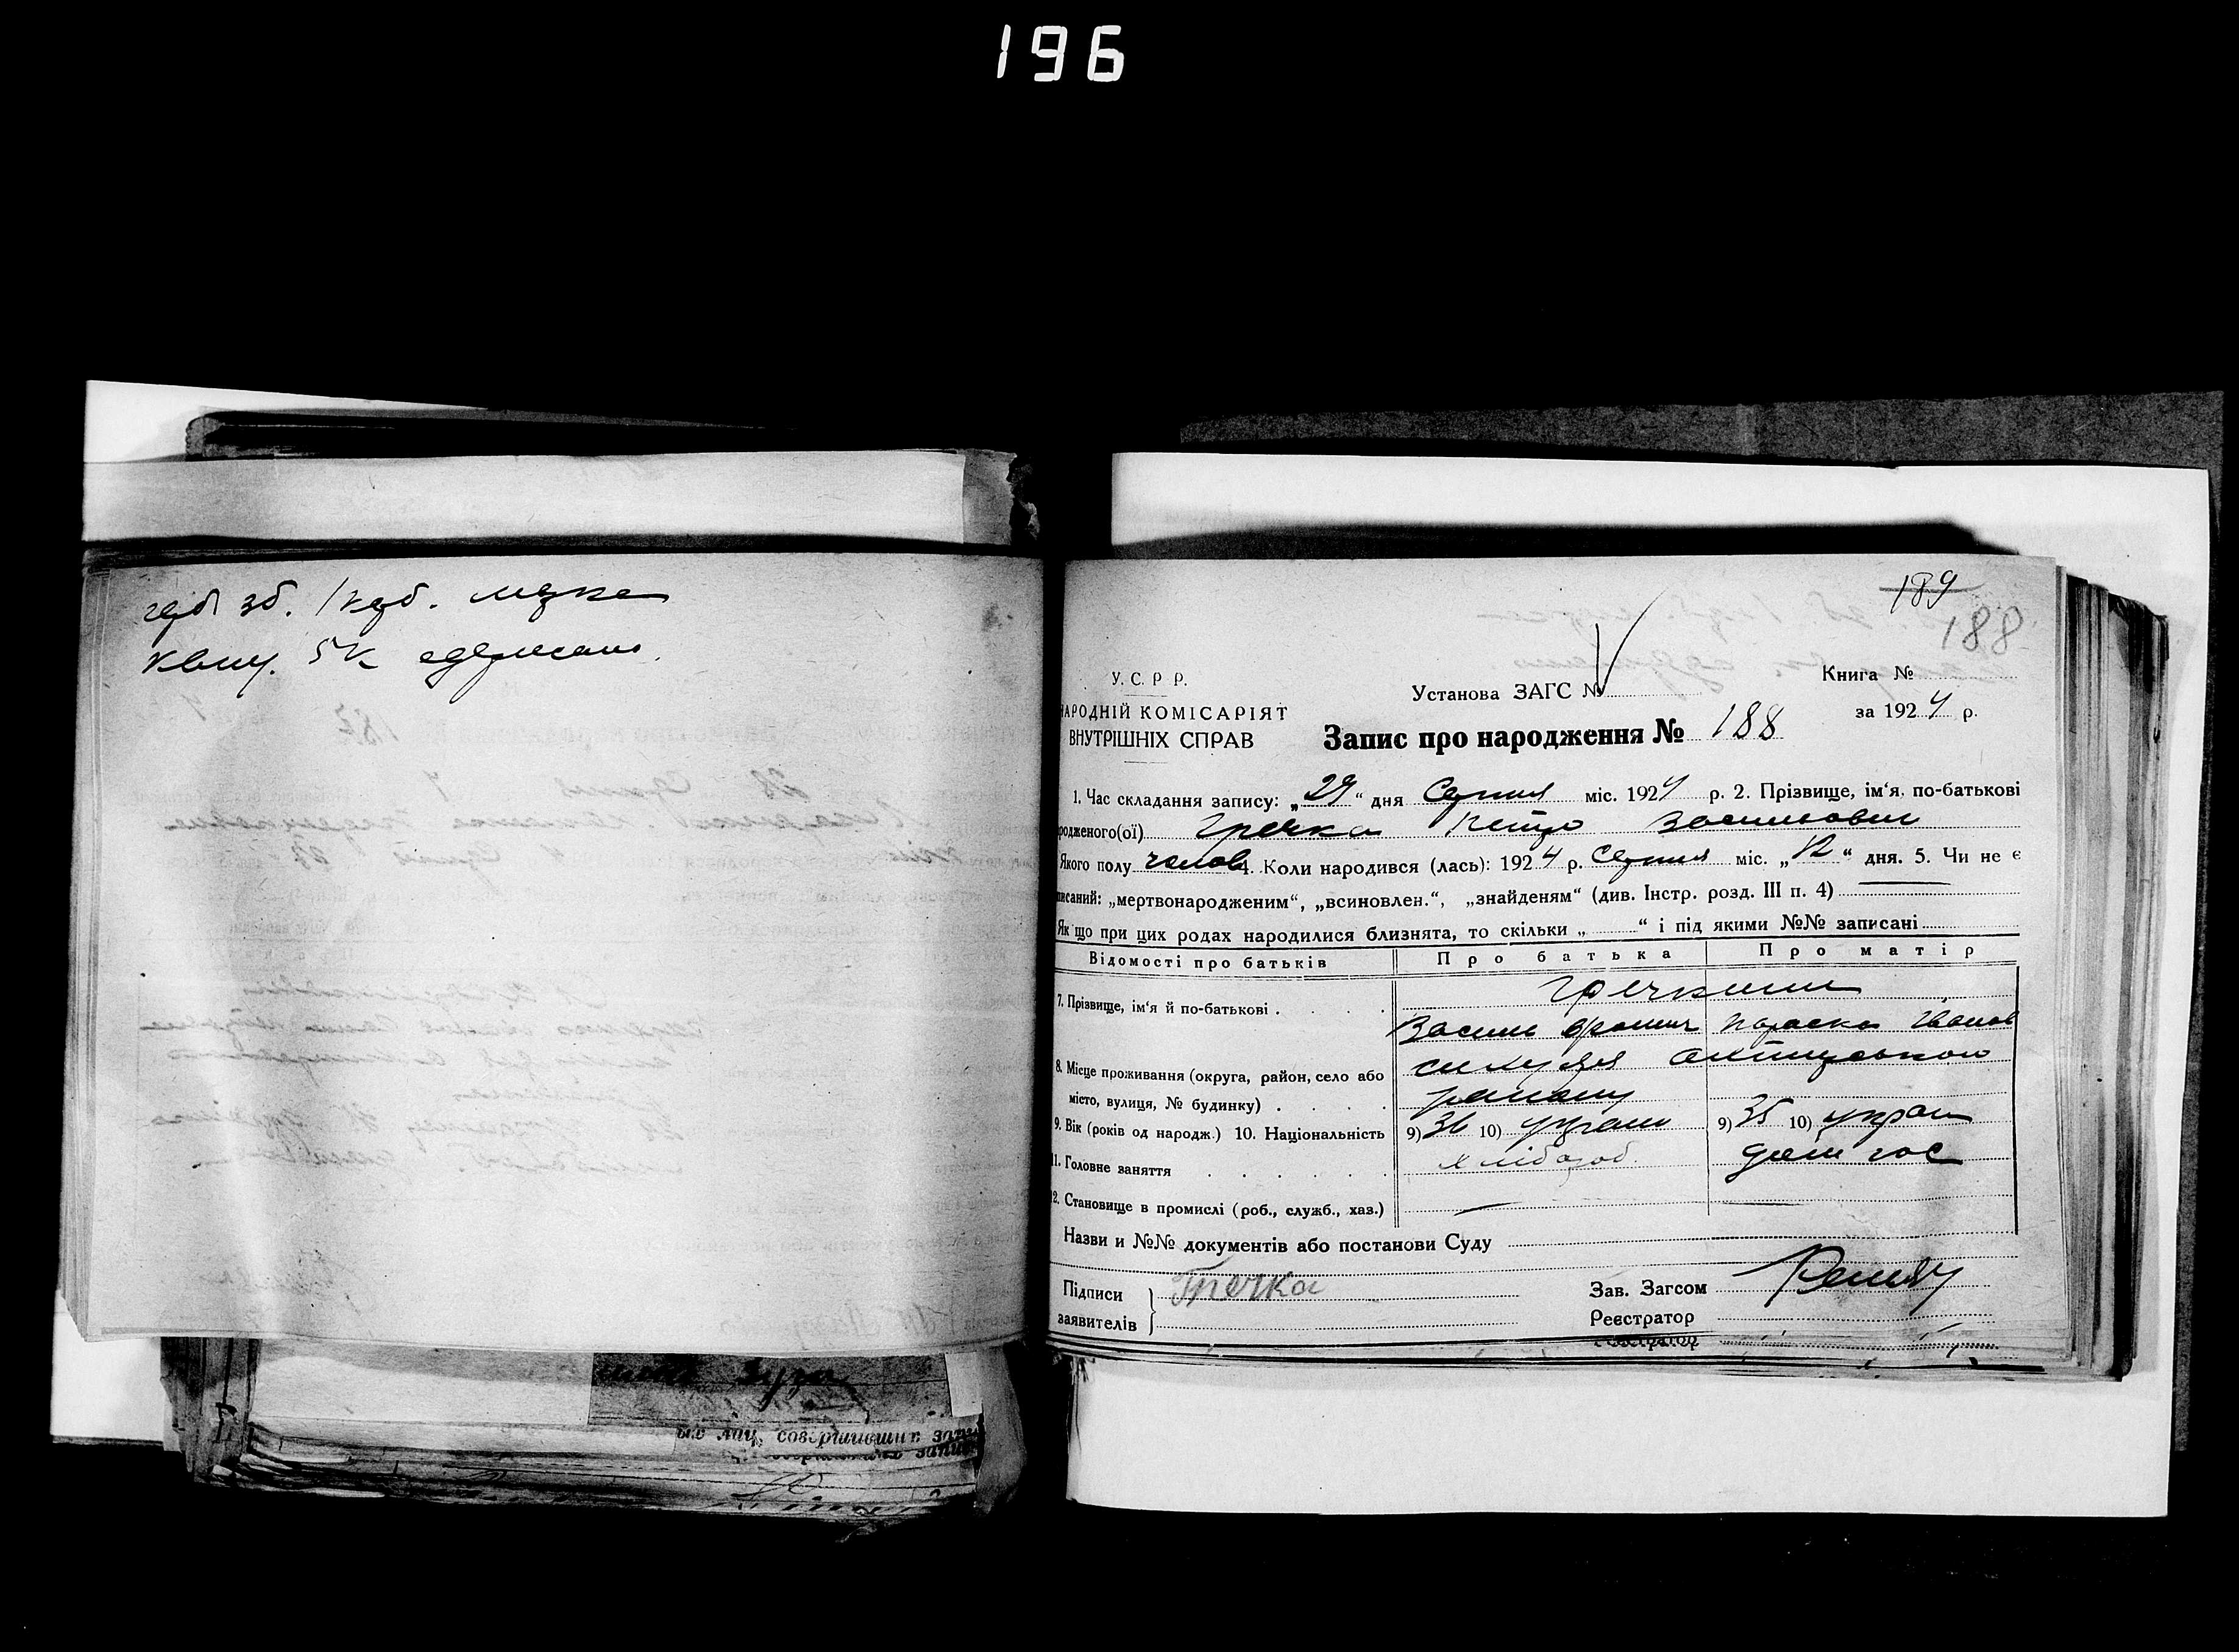 196
зб.
5к одержано.
189
188
У. С. Р Р.
НАРОДНІЙ КОМІСАРІЯТ
ВНУТРІШНІХ СПРАВ
Установа ЗАГС №
Книга №
за 1924 р.
Запис про народження № 188
1. Час складання запису: „29“ дня Серпня міс. 1924 р. 2. Прізвище, ім‘я, по-батькові
родженого(ої) Гречка Петро Васильович
Якого полу чолов 4. Коли народився (лась): 1924 р. Серпня міс. „12“ дня. 5. Чи не є
писаний: „мертвонародженим“, „всиновлен.“, „знайденям“ (див. Інстр. розд. III п. 4)
Як що при цих родах народилися близнята, то скільки „ “ і під якими №№ записані
Відомості про батьків
Про батька
Про матір
7. Прізвище, ім‘я й по-батькові .
Гречкини
Василь Параска Іванов
8. Місце проживання (округа, район, село або
місто, вулиця, № будинку) .
району
9. Вік (років од народж.) 10. Національність
9) 36 10) украін
9) 35 10) украін
11. Головне заняття
хлібороб
дом гос
12. Становище в промислі (роб., служб., хаз.)
Назви и №№ документів або постанови Суду
Підписи
заявителів
Гречка
Зав. Загсом
Реєстратор
Реєстратор
их лиц, совершивших запи